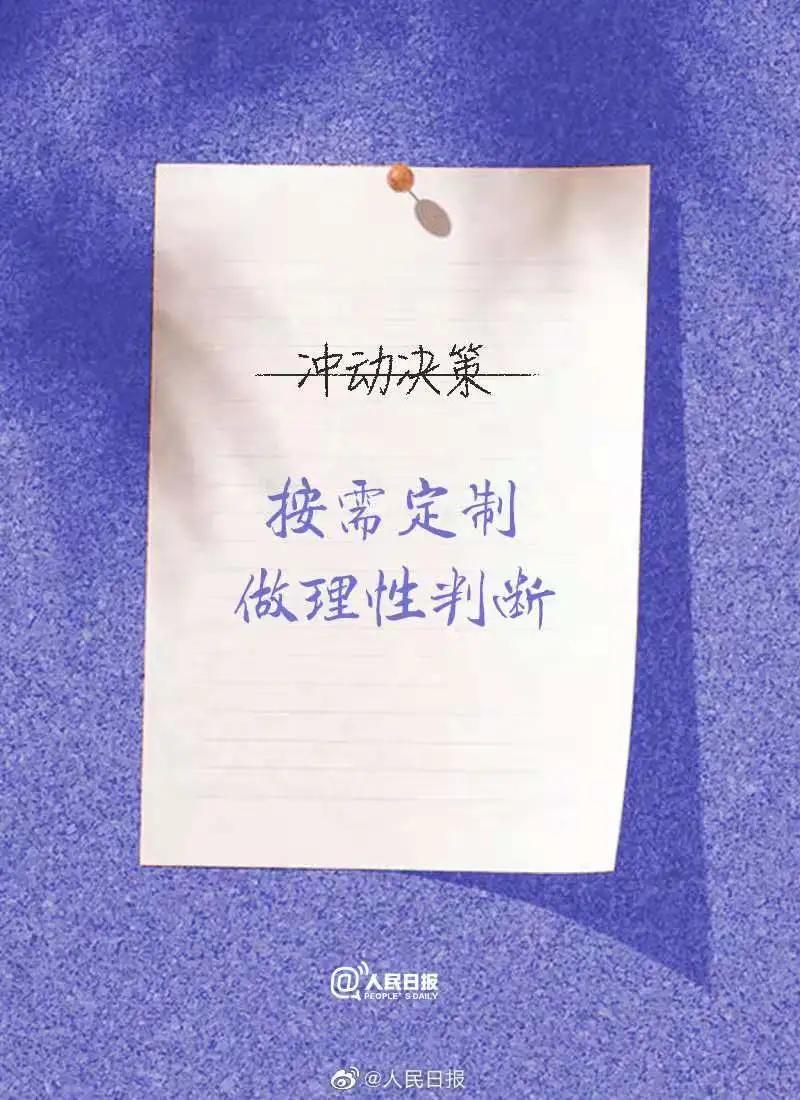 冲动决策
按需定制
做理性判断
@人民日报
PEOPLE'S DAILY
@人民日报